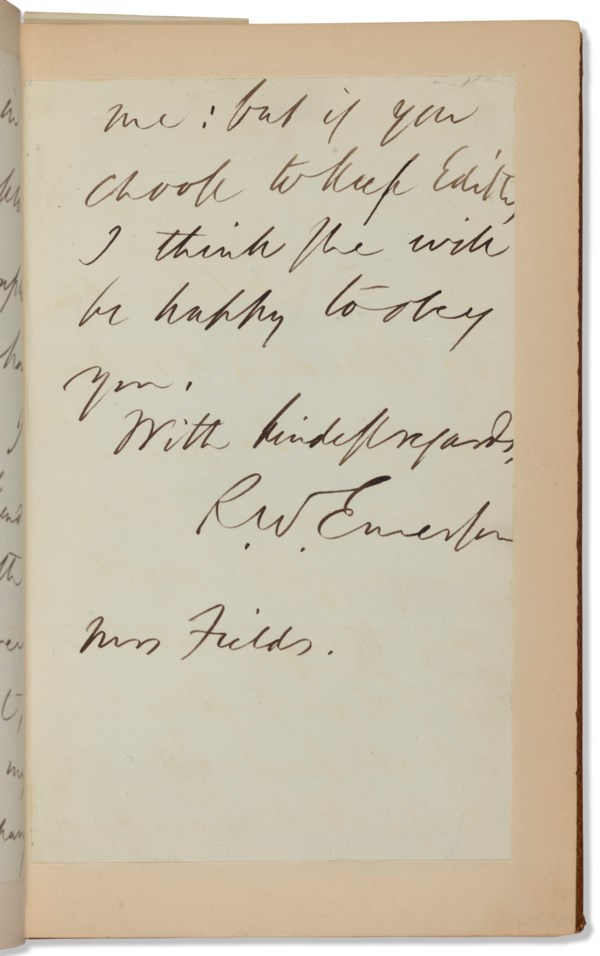 me: but if you
choose to keep Edith,
I think she will
be happy to obey
you.
With kindest regards,
R. W. Emerson
Mrs Fields.